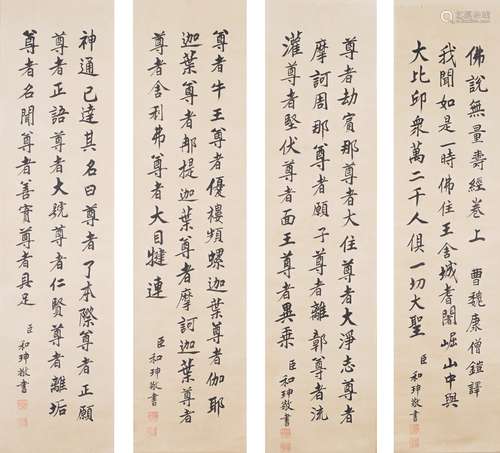 佛說無量壽經卷上 曹魏康僧鎧譯
我聞如是一時佛住王舍城耆闍崛山中與
大比邱衆萬二千人俱一切大聖
臣和珅敬書
尊者劫賓那尊者大住尊者大淨志尊者
摩訶周那尊者願子尊者離彰尊者流
灌尊者堅伏尊者面王尊者異乘
臣和珅敬書
尊者牛王尊者優樓頻螺迦葉尊者伽耶
迦葉尊者那提迦葉尊者摩訶迦葉尊者
尊者舍利弗尊者大目犍連
臣和珅敬書
神通已達其名曰尊者了本際尊者正願
尊者正語尊者大號尊者仁賢尊者離垢
尊者名聞尊者善實尊者具足
臣和珅敬書